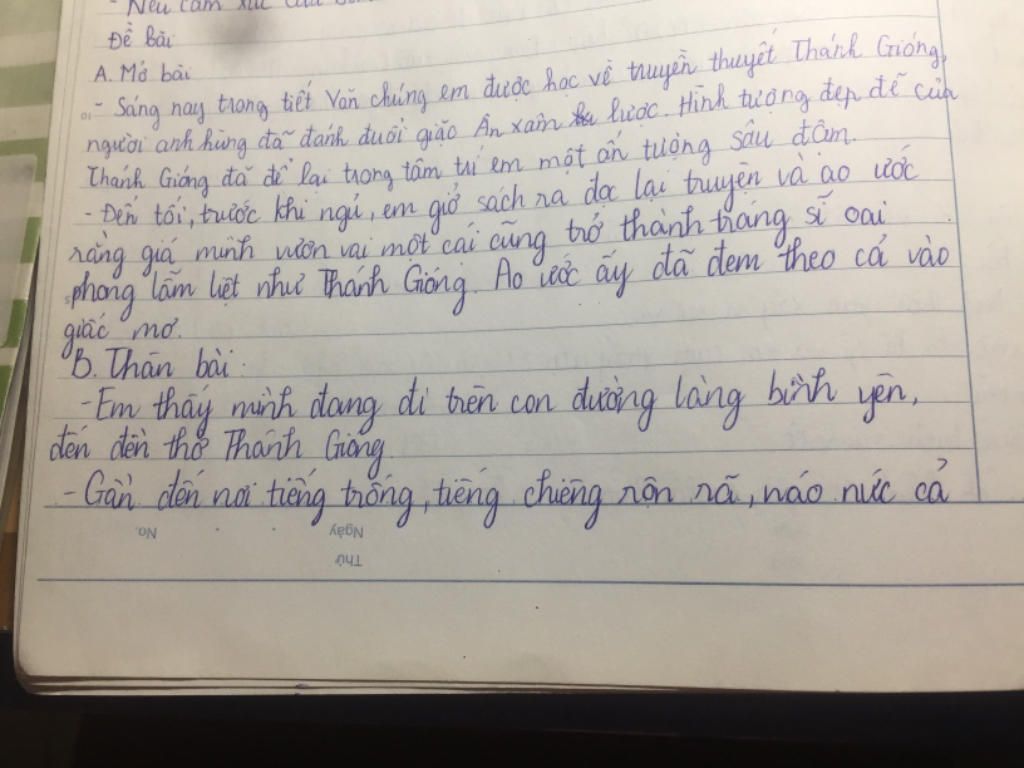 - Nêu cảm xúc của
Đề bài
A. Mở bài
- Sáng nay trong tiết Văn chúng em được học về truyền thuyết Thánh Gióng,
người anh hùng đã đánh đuổi giặc Ân xâm lược. Hình tượng đẹp đẽ của
Thánh Gióng đã để lại trong tâm trí em một ấn tượng sâu đâm.
- Đến tối, trước khi ngủ, em giở sách ra đọc lại truyện và ao ước
rằng giá mình vươn vai một cái cũng trở thành tráng sĩ oai
phong lẫm liệt như Thánh Gióng. Ao ước ấy đã đem theo cả vào
giấc mơ.
B. Thân bài:
- Em thấy mình đang đi trên con đường làng bình yên,
đến đền thờ Thánh Gióng
- Gần đến nơi tiếng trống, tiếng chiêng rộn rã, náo nức cả
No.
Ngày
Thứ